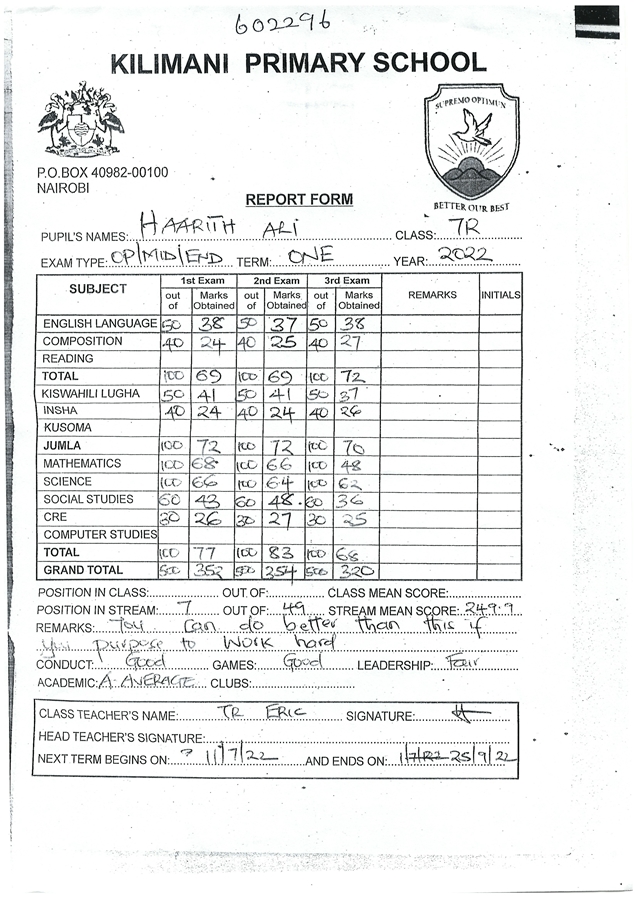 602296
KILIMANI PRIMARY SCHOOL
SUPREMO OPTIMUN
P.O.BOX 40982-00100
NAIROBI
BETTER OUR BEST
REPORT FORM
PUPIL'S NAMES: HAARITH ALI CLASS: 7R
EXAM TYPE: OP/MID/END TERM: ONE YEAR: 2022
SUBJECT 1st Exam 2nd Exam 3rd Exam REMARKS INITIALS
out of Marks Obtained out of Marks Obtained out of Marks Obtained
ENGLISH LANGUAGE 50 38 50 37 50 38
COMPOSITION 40 24 40 25 40 27
READING
TOTAL 100 69 100 69 100 72
KISWAHILI LUGHA 50 41 50 41 50 37
INSHA 40 24 40 24 40 26
KUSOMA
JUMLA 100 72 100 72 100 70
MATHEMATICS 100 68 100 66 100 48
SCIENCE 100 66 100 64 100 62
SOCIAL STUDIES 60 43 60 48 60 36
CRE 30 26 30 27 30 25
COMPUTER STUDIES
TOTAL 100 77 100 83 100 68
GRAND TOTAL 500 352 500 354 500 320
POSITION IN CLASS: OUT OF: CLASS MEAN SCORE:
POSITION IN STREAM: 7 OUT OF: 49 STREAM MEAN SCORE: 249.9
REMARKS: You can do better than this if
you purpose to work hard
CONDUCT: Good GAMES: Good LEADERSHIP: Fair
ACADEMIC: A AVERAGE CLUBS:
CLASS TEACHER'S NAME: TR ERIC SIGNATURE:
HEAD TEACHER'S SIGNATURE:
NEXT TERM BEGINS ON: 11/7/22 AND ENDS ON: 25/9/22